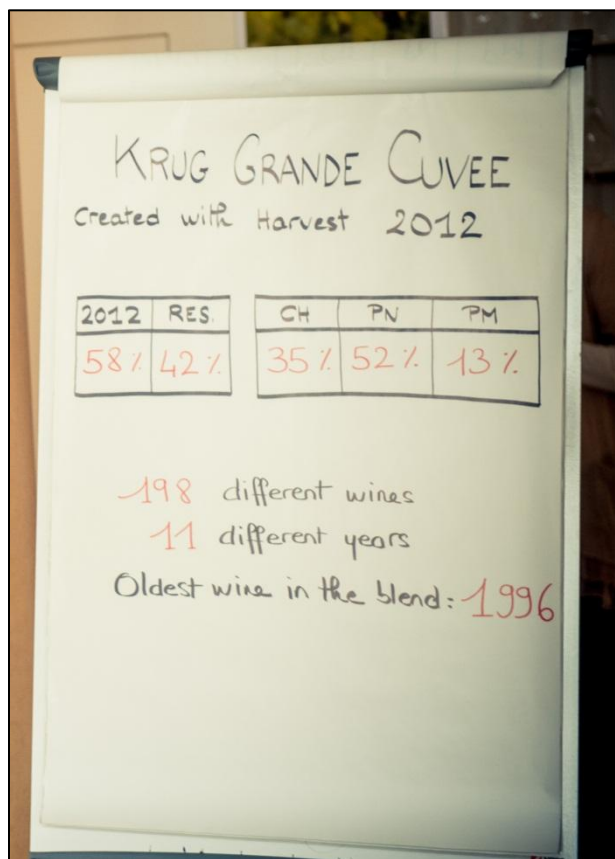 KRUG GRANDE CUVEE
Created with Harvest 2012
2012 RES. CH PN PM
58% 42% 35% 52% 13%
198 different wines
11 different years
Oldest wine in the blend: 1996